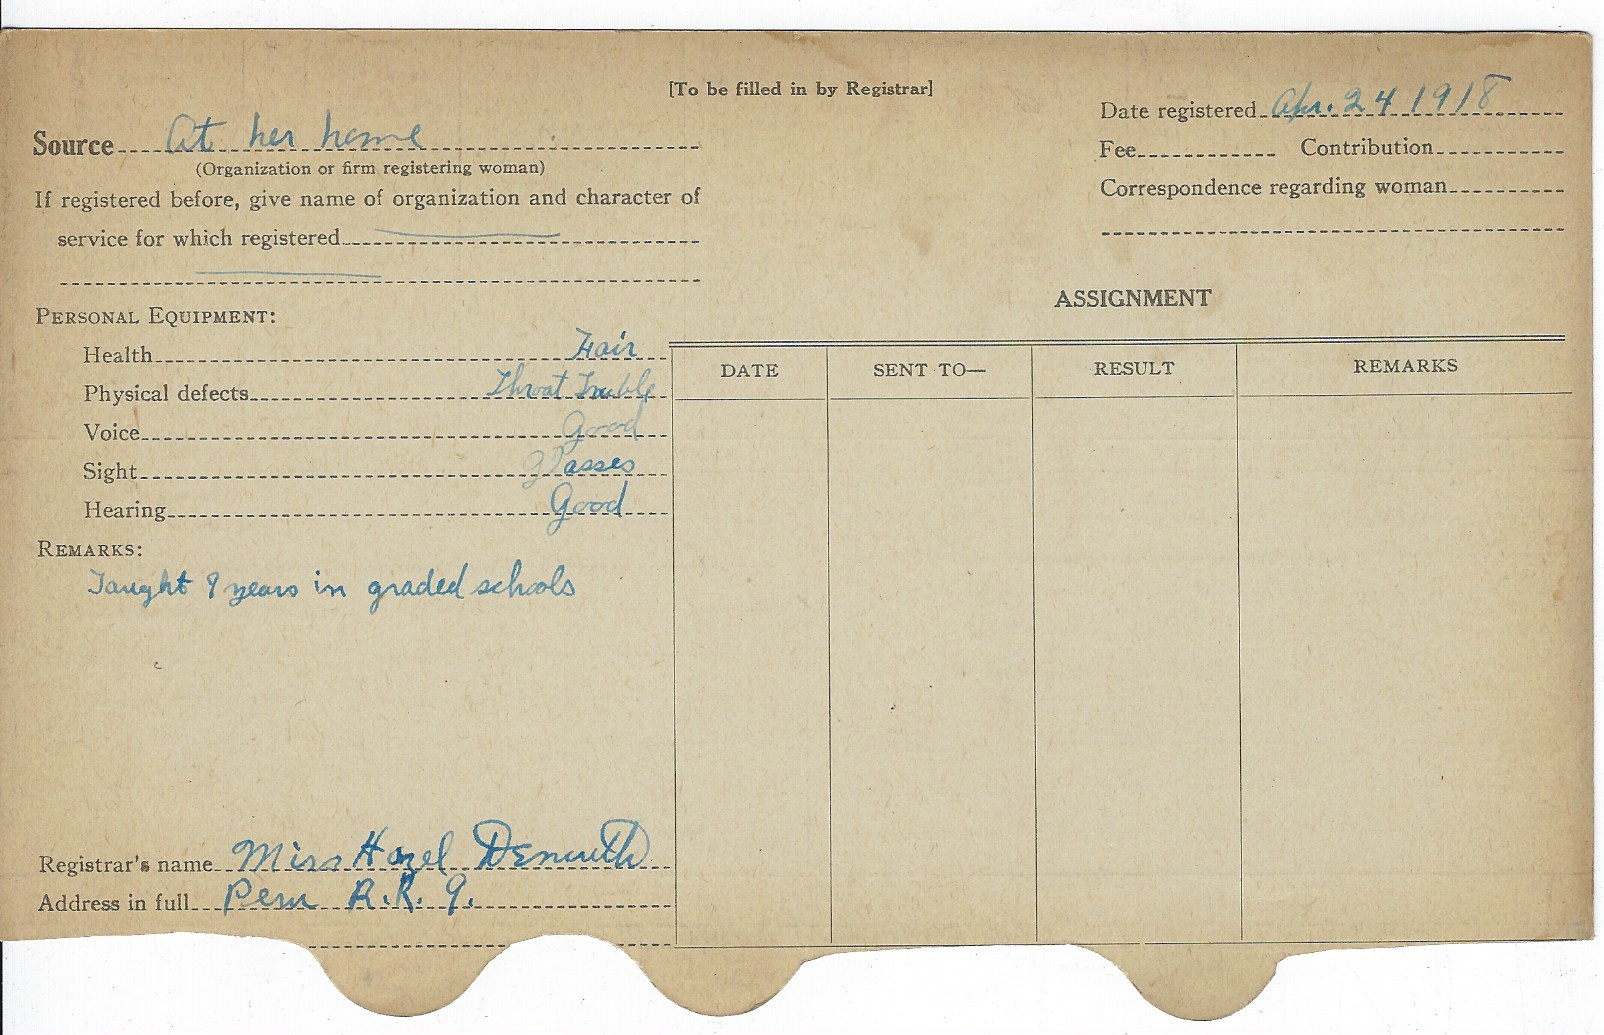 [To be filled in by Registrar]
Date registered Apr. 24 1918
Source At her home
(Organization or firm registering woman)
Fee Contribution
If registered before, give name of organization and character of
service for which registered
Correspondence regarding woman
ASSIGNMENT
PERSONAL EQUIPMENT:
Health Fair
Physical defects Throat Trouble
Voice Good
Sight Glasses
Hearing Good
DATE SENT TO— RESULT REMARKS
REMARKS:
Taught 8 years in graded schools
Registrar's name Miss Hazel Demuth
Address in full Peru R.R. 9.